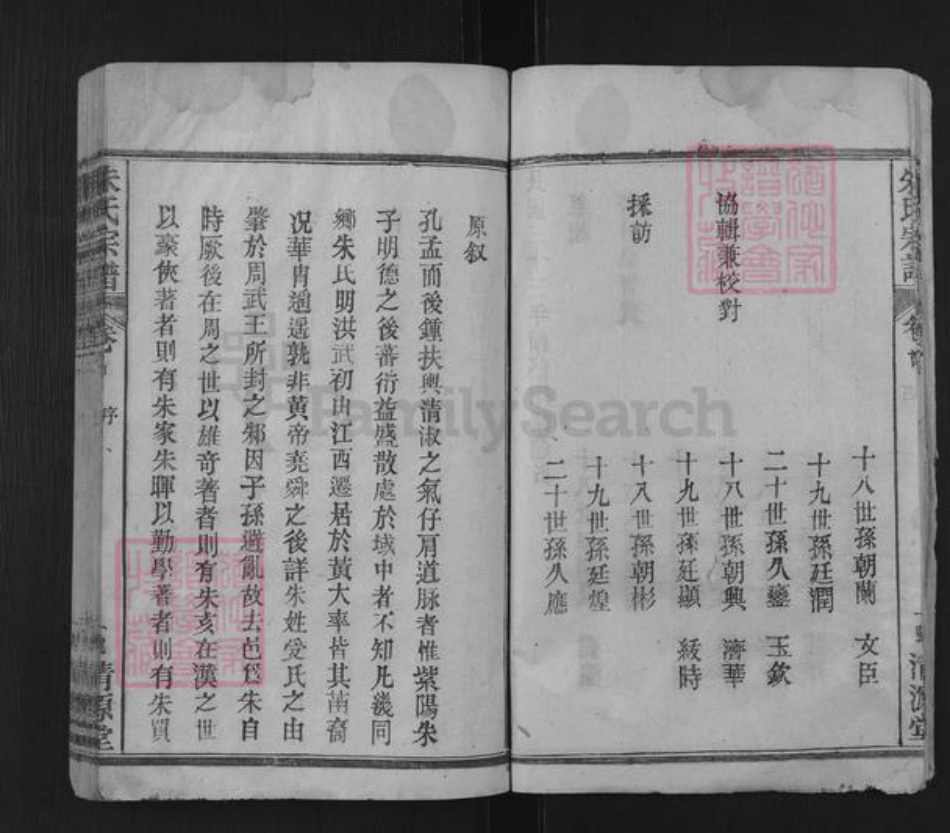 朱氏宗譜
卷首
清源堂
十八世孫朝蘭 文臣
十九世孫廷潤
二十世孫久鑾 玉欽
協輯兼校對
十八世孫朝興 濟華
十九世孫廷顯 綏時
採訪
十八世孫朝彬
十九世孫廷煌
二十世孫久應
原叙
孔孟而後鍾扶輿清淑之氣仔肩道脉者惟紫陽朱
子明德之後蕃衍益盛散處於域中者不知凡幾同
鄉朱氏明洪武初由江西遷居於黃大率皆其苗裔
况華胄遥遥孰非黃帝堯舜之後詳朱姓受氏之由
肇於周武王所封之邾因子孫避亂故去邑爲朱自
時厥後在周之世以雄奇著者則有朱亥在漢之世
以豪俠著者則有朱家朱暉以勤學著者則有朱買
朱氏宗譜
卷首
序
清源堂
FamilySearch